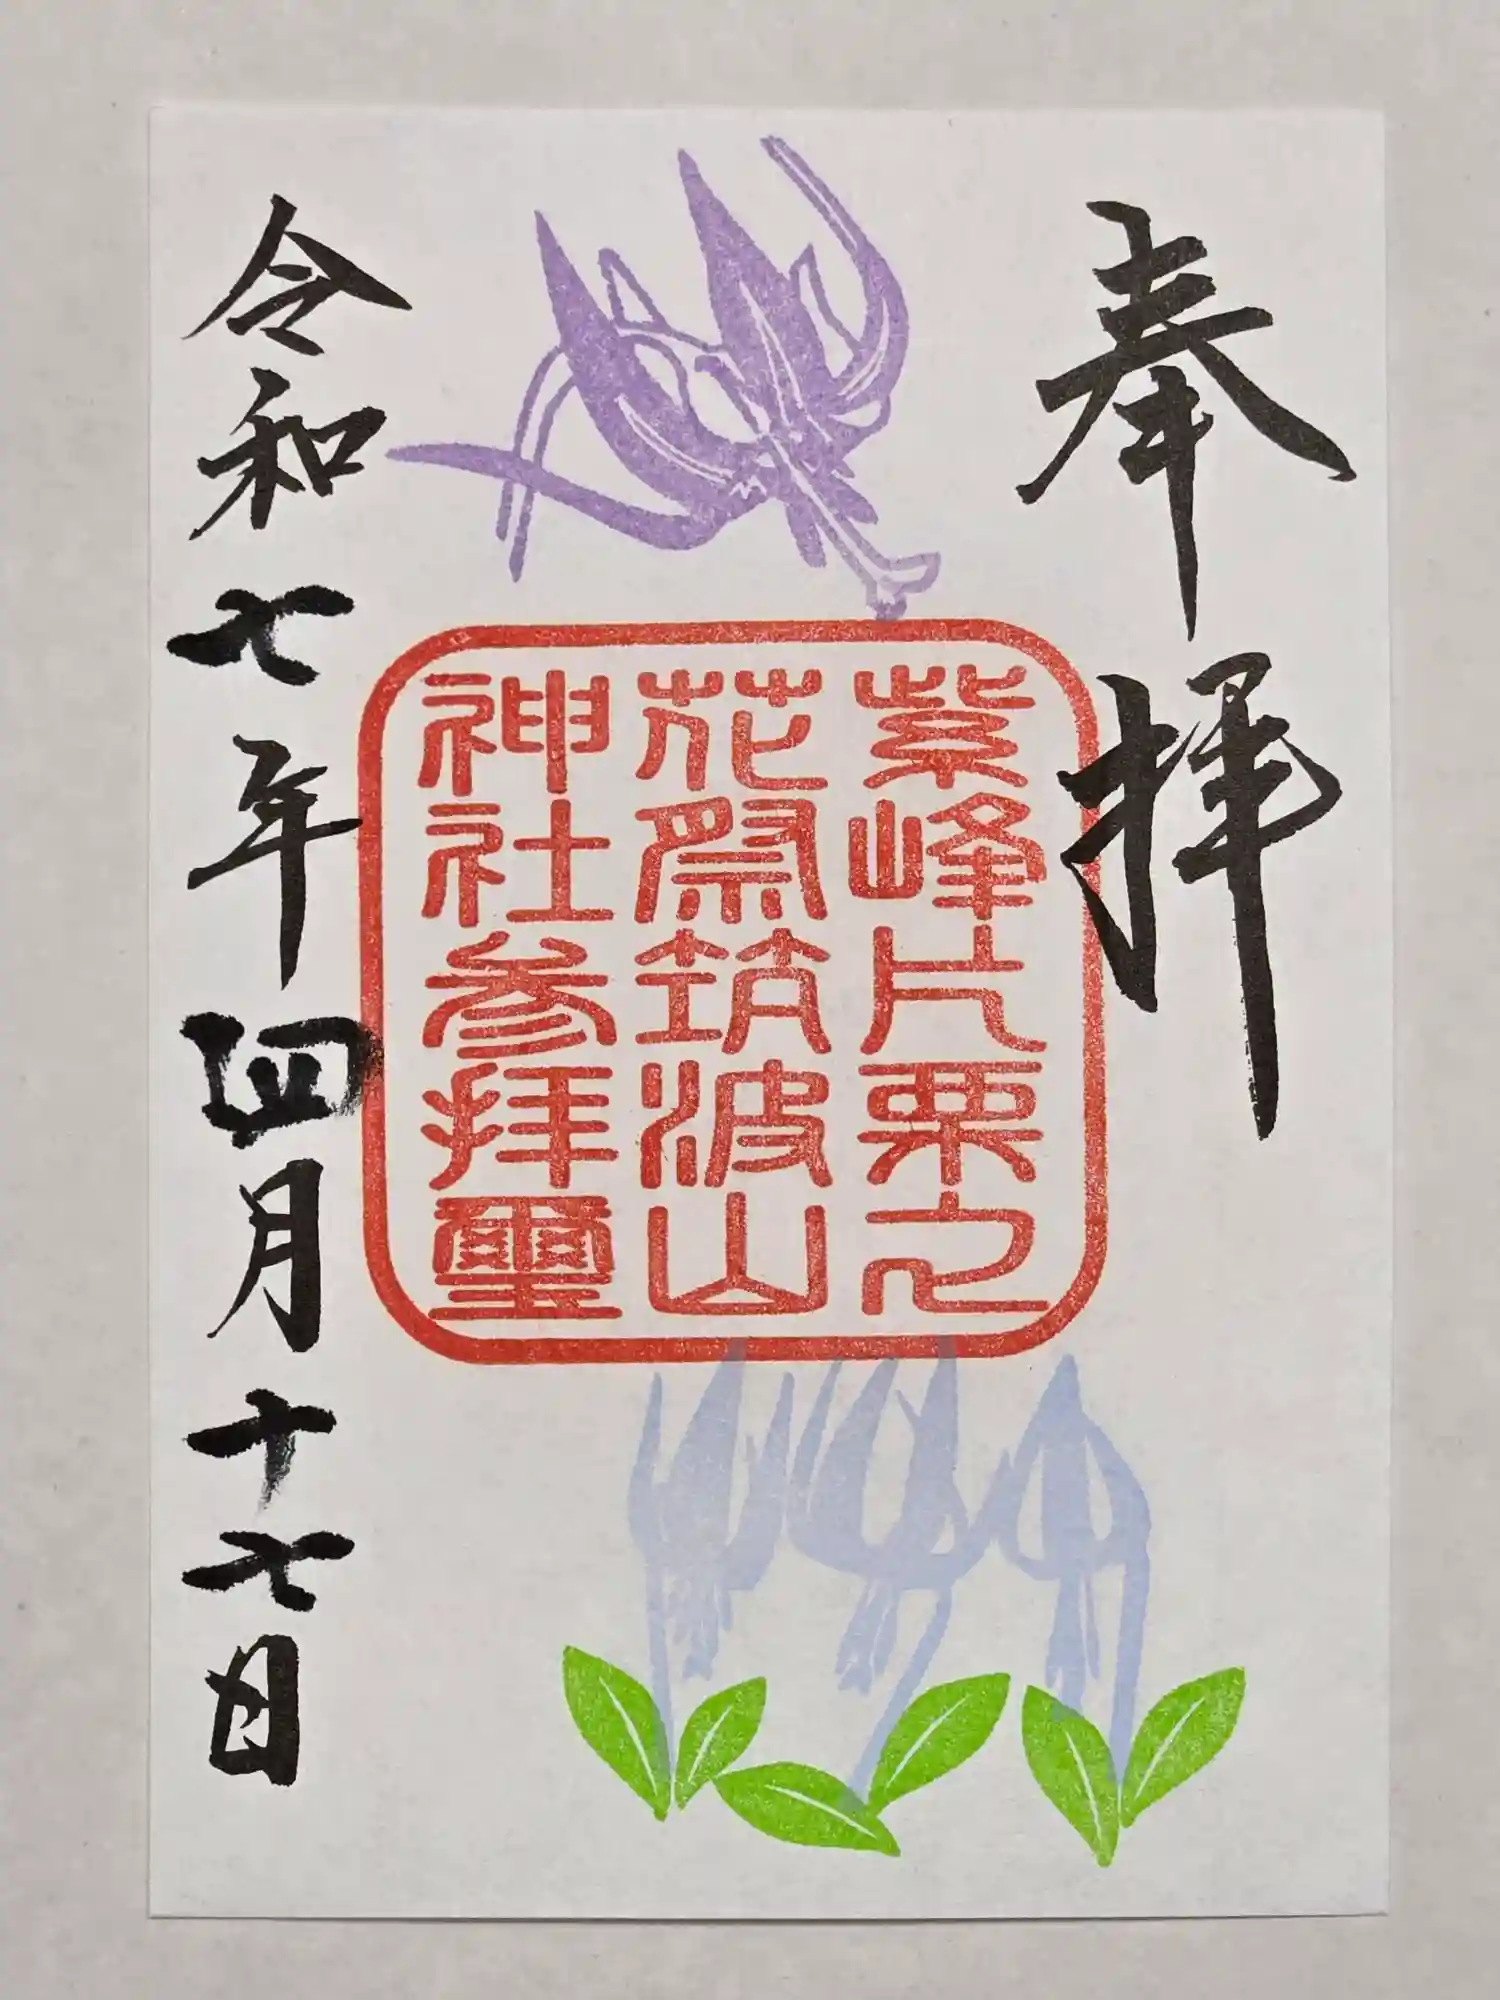 奉拝
紫峰片栗之
花祭筑波山
神社参拝璽
令和七年四月十七日